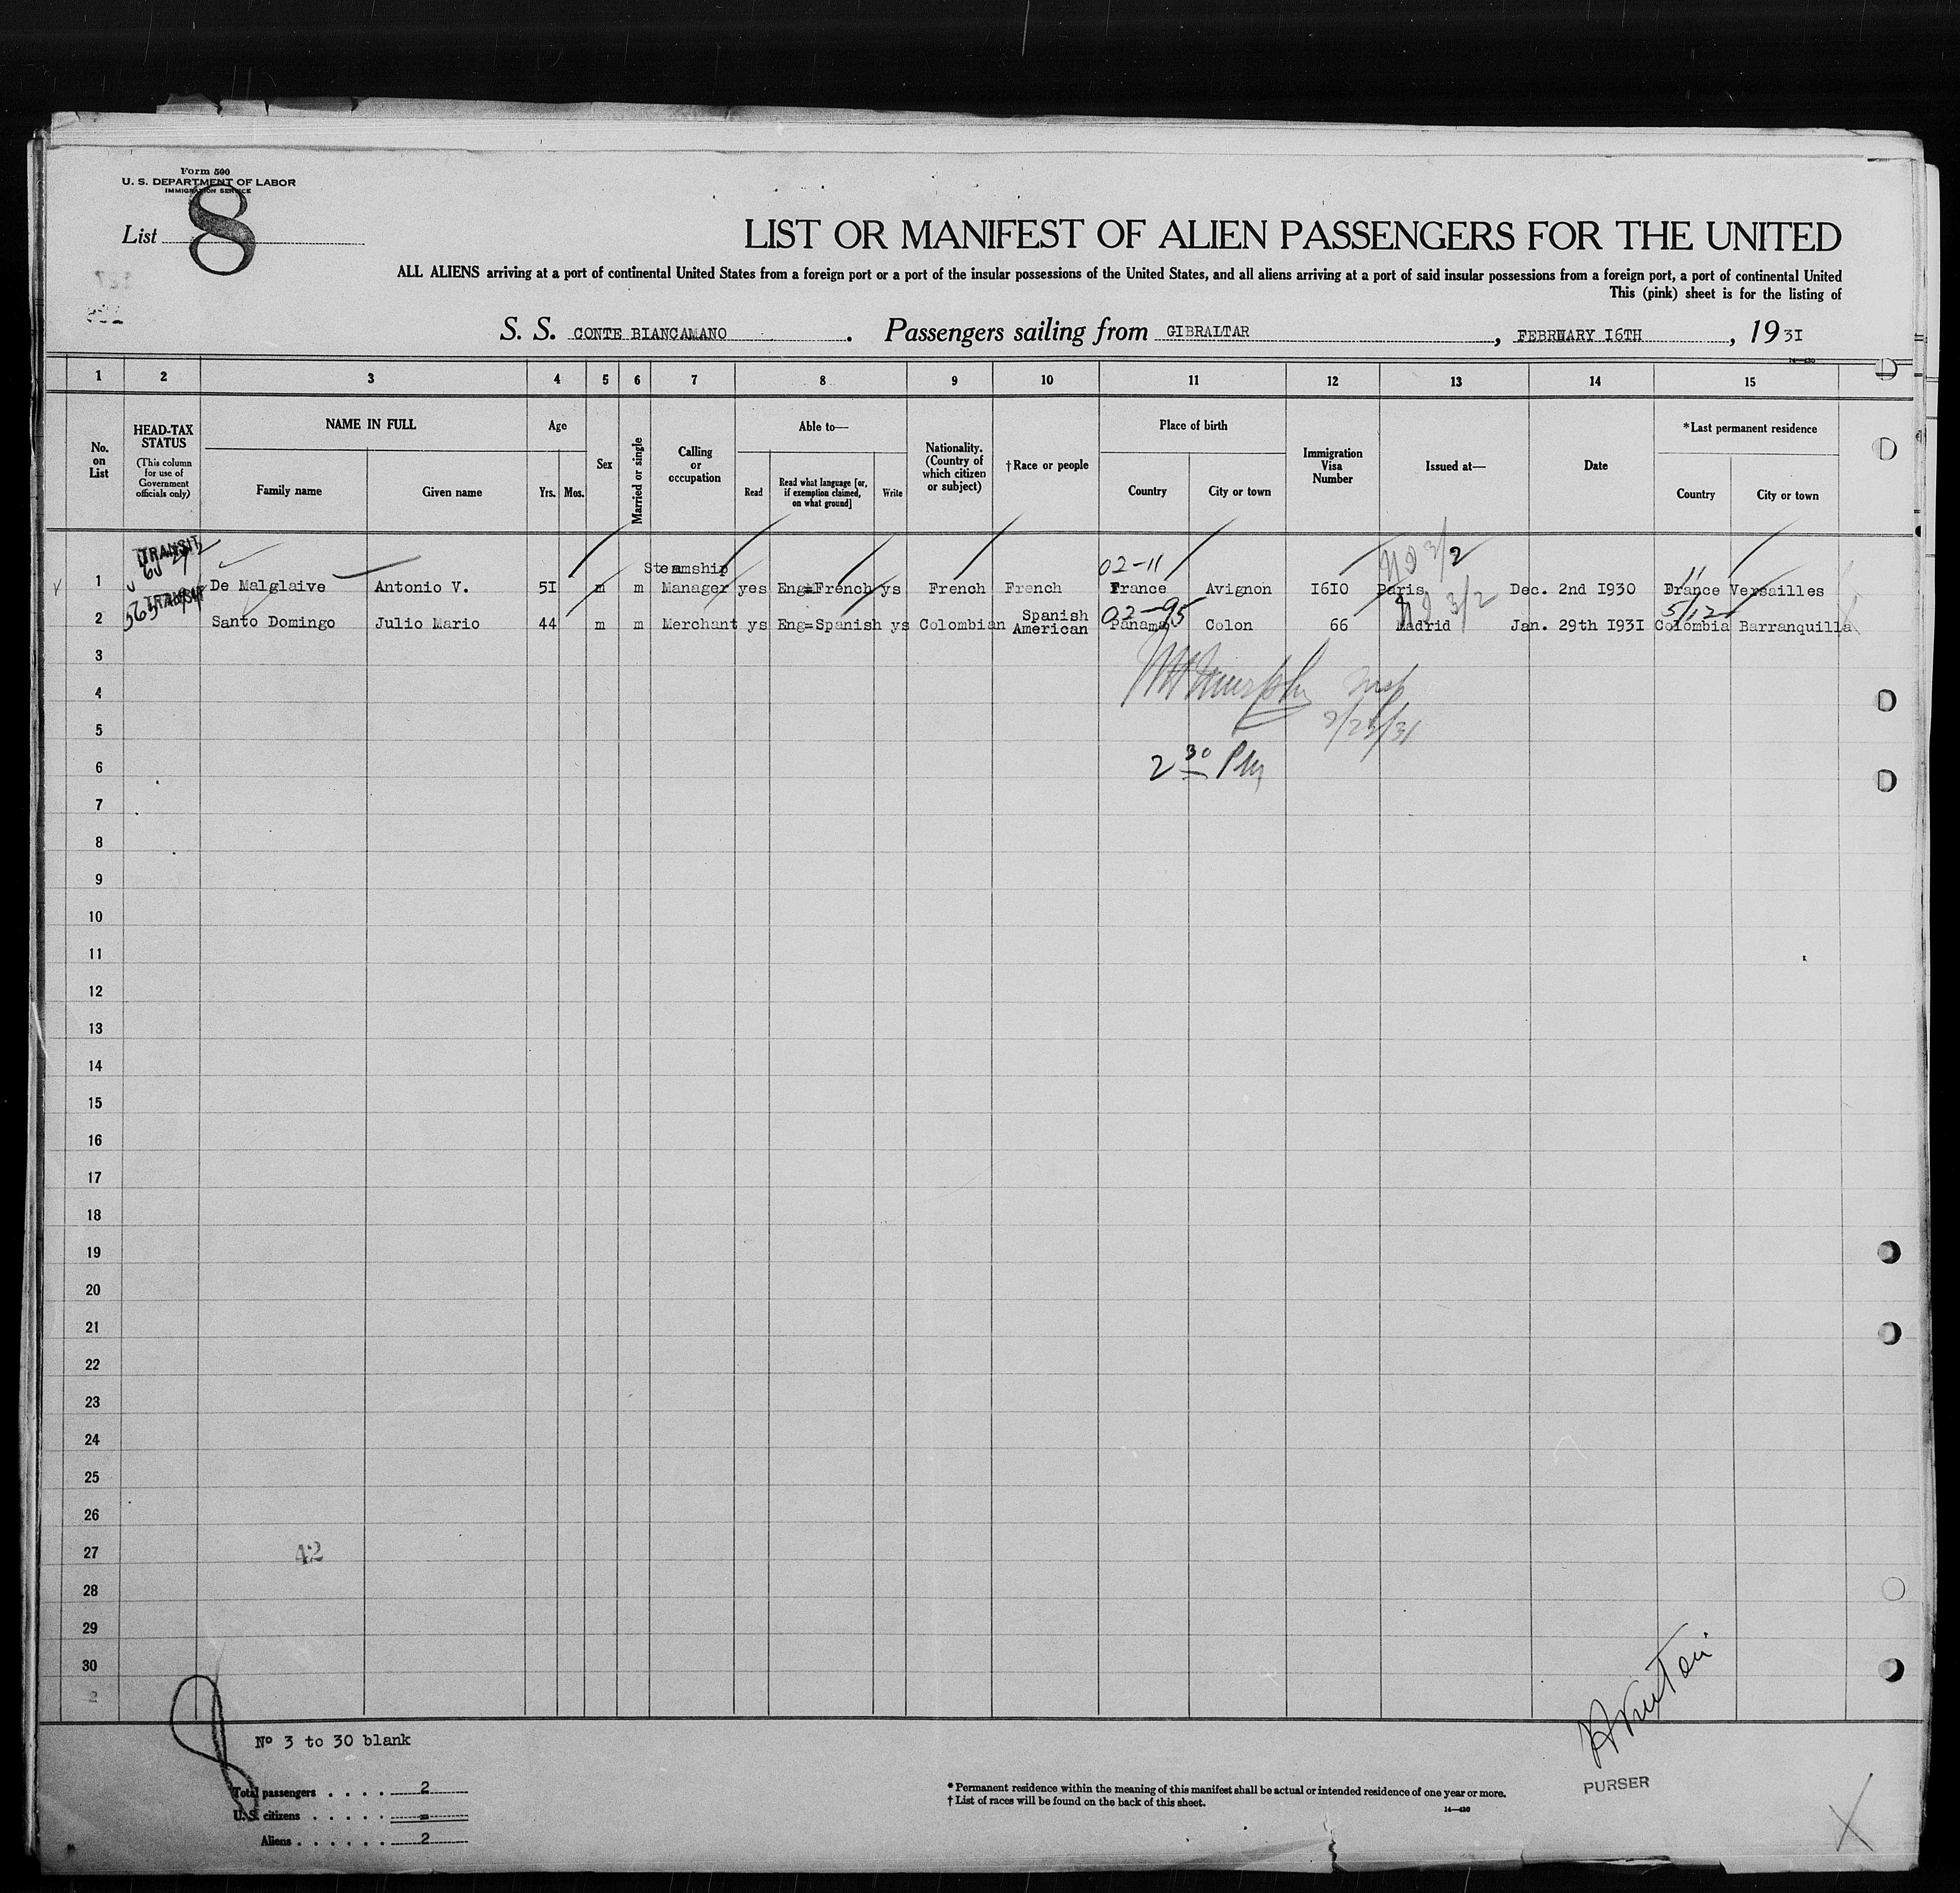 Form 500
U. S. DEPARTMENT OF LABOR
IMMIGRATION SERVICE
List 8
LIST OR MANIFEST OF ALIEN PASSENGERS FOR THE UNITED
ALL ALIENS arriving at a port of continental United States from a foreign port or a port of the insular possessions of the United States, and all aliens arriving at a port of said insular possessions from a foreign port, a port of continental United
This (pink) sheet is for the listing of
S. S. CONTE BIANCAMANO. Passengers sailing from GIBRALTAR, FEBRUARY I6TH, 1931
14—430
1 2 3 4 5 6 7 8 9 10 11 12 13 14 15
No. on List
HEAD-TAX STATUS
(This column for use of Government officials only)
NAME IN FULL
Family name
Given name
Age
Yrs. Mos.
Sex
Married or single
Calling or occupation
Able to—
Read
Read what language [or, if exemption claimed, on what ground]
Write
Nationality. (Country of which citizen or subject)
†Race or people
Place of birth
Country
City or town
Immigration Visa Number
Issued at—
Date
*Last permanent residence
Country
City or town
TRANSIT
02-11
3/2
Steamship
1 De Malglaive Antonio V. 5I m m Manager yes Eng=French ys French French France Avignon I6I0 Paris Dec. 2nd I930 France Versailles
TRANSIT
02-95
3/2
5/12
2 Santo Domingo Julio Mario 44 m m Merchant ys Eng=Spanish ys Colombian Spanish American Panama Colon 66 Madrid Jan. 29th I93I Colombia Barranquilla
3
4
Insp
5
2/23/31
6
2 30 Pm
7
8
9
10
11
12
13
14
15
16
17
18
19
20
21
22
23
24
25
26
27
42
28
29
30
2
8
Nº 3 to 30 blank
Total passengers . . . . 2
U. S. citizens . . . . . =
Aliens . . . . . . 2
* Permanent residence within the meaning of this manifest shall be actual or intended residence of one year or more.
† List of races will be found on the back of this sheet.
14—430
PURSER
X